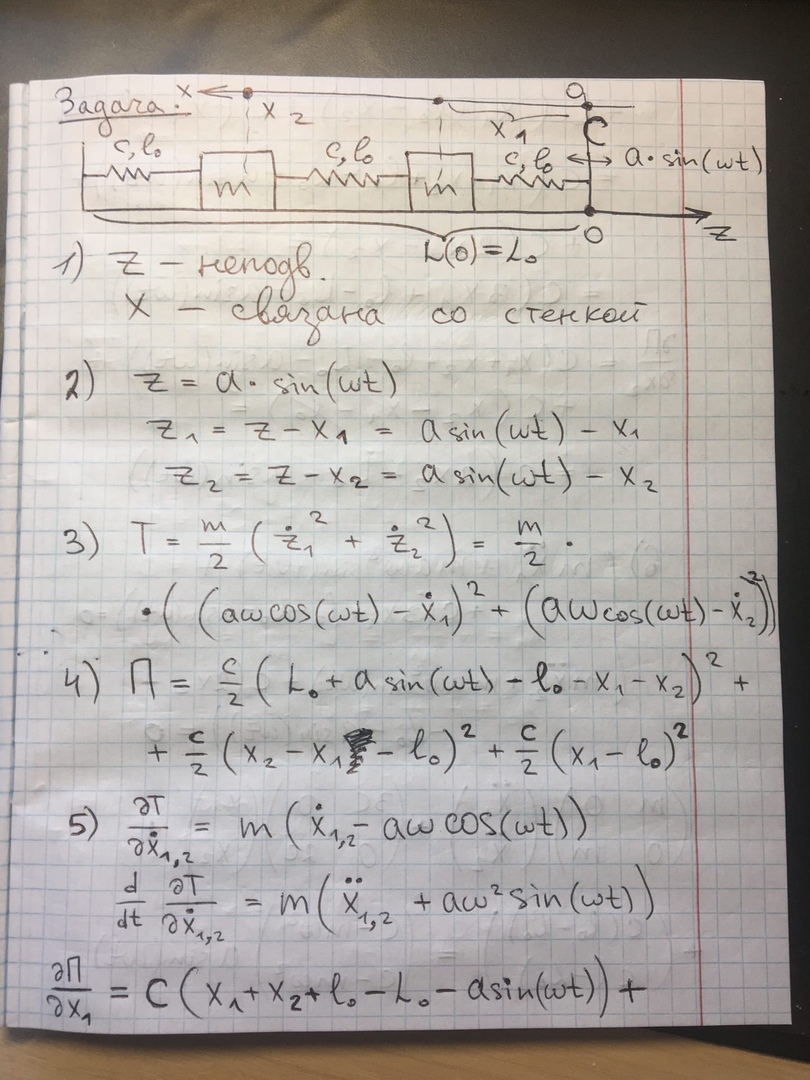 Задача.
x
x₂
x₁
O
C
c, l₀
c, l₀
c, l₀
a·sin(ωt)
m
m
L(0)=L₀
O
z
1) z – неподв.
x – связана со стенкой
2) z = a·sin(ωt)
z₁ = z – x₁ = a sin(ωt) – x₁
z₂ = z – x₂ = a sin(ωt) – x₂
3) T = m/2 (ż₁² + ż₂²) = m/2 ·
·((aω cos(ωt) – ẋ₁)² + (aω cos(ωt) – ẋ₂)²)
4) П = c/2 (L₀ + a sin(ωt) – l₀ – x₁ – x₂)² +
+ c/2 (x₂ – x₁ – l₀)² + c/2 (x₁ – l₀)²
5) ∂T/∂ẋ₁,₂ = m(ẋ₁,₂ – aω cos(ωt))
d/dt ∂T/∂ẋ₁,₂ = m(ẍ₁,₂ + aω² sin(ωt))
∂П/∂x₁ = c(x₁ + x₂ + l₀ – L₀ – a sin(ωt)) +